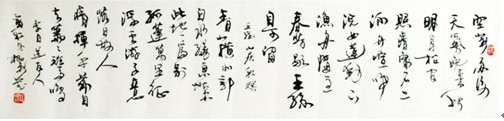 空山新雨後
天氣晚來秋
明月松間
照清泉石上
流竹喧歸
浣女蓮動下
漁舟隨意
春芳歇王孫
自可留
王維山居秋暝
青山橫北郭
白水繞東城
此地一為別
孤蓬萬里征
浮雲遊子意
落日故人
情揮手自茲
去蕭蕭班馬鳴
李白送友人